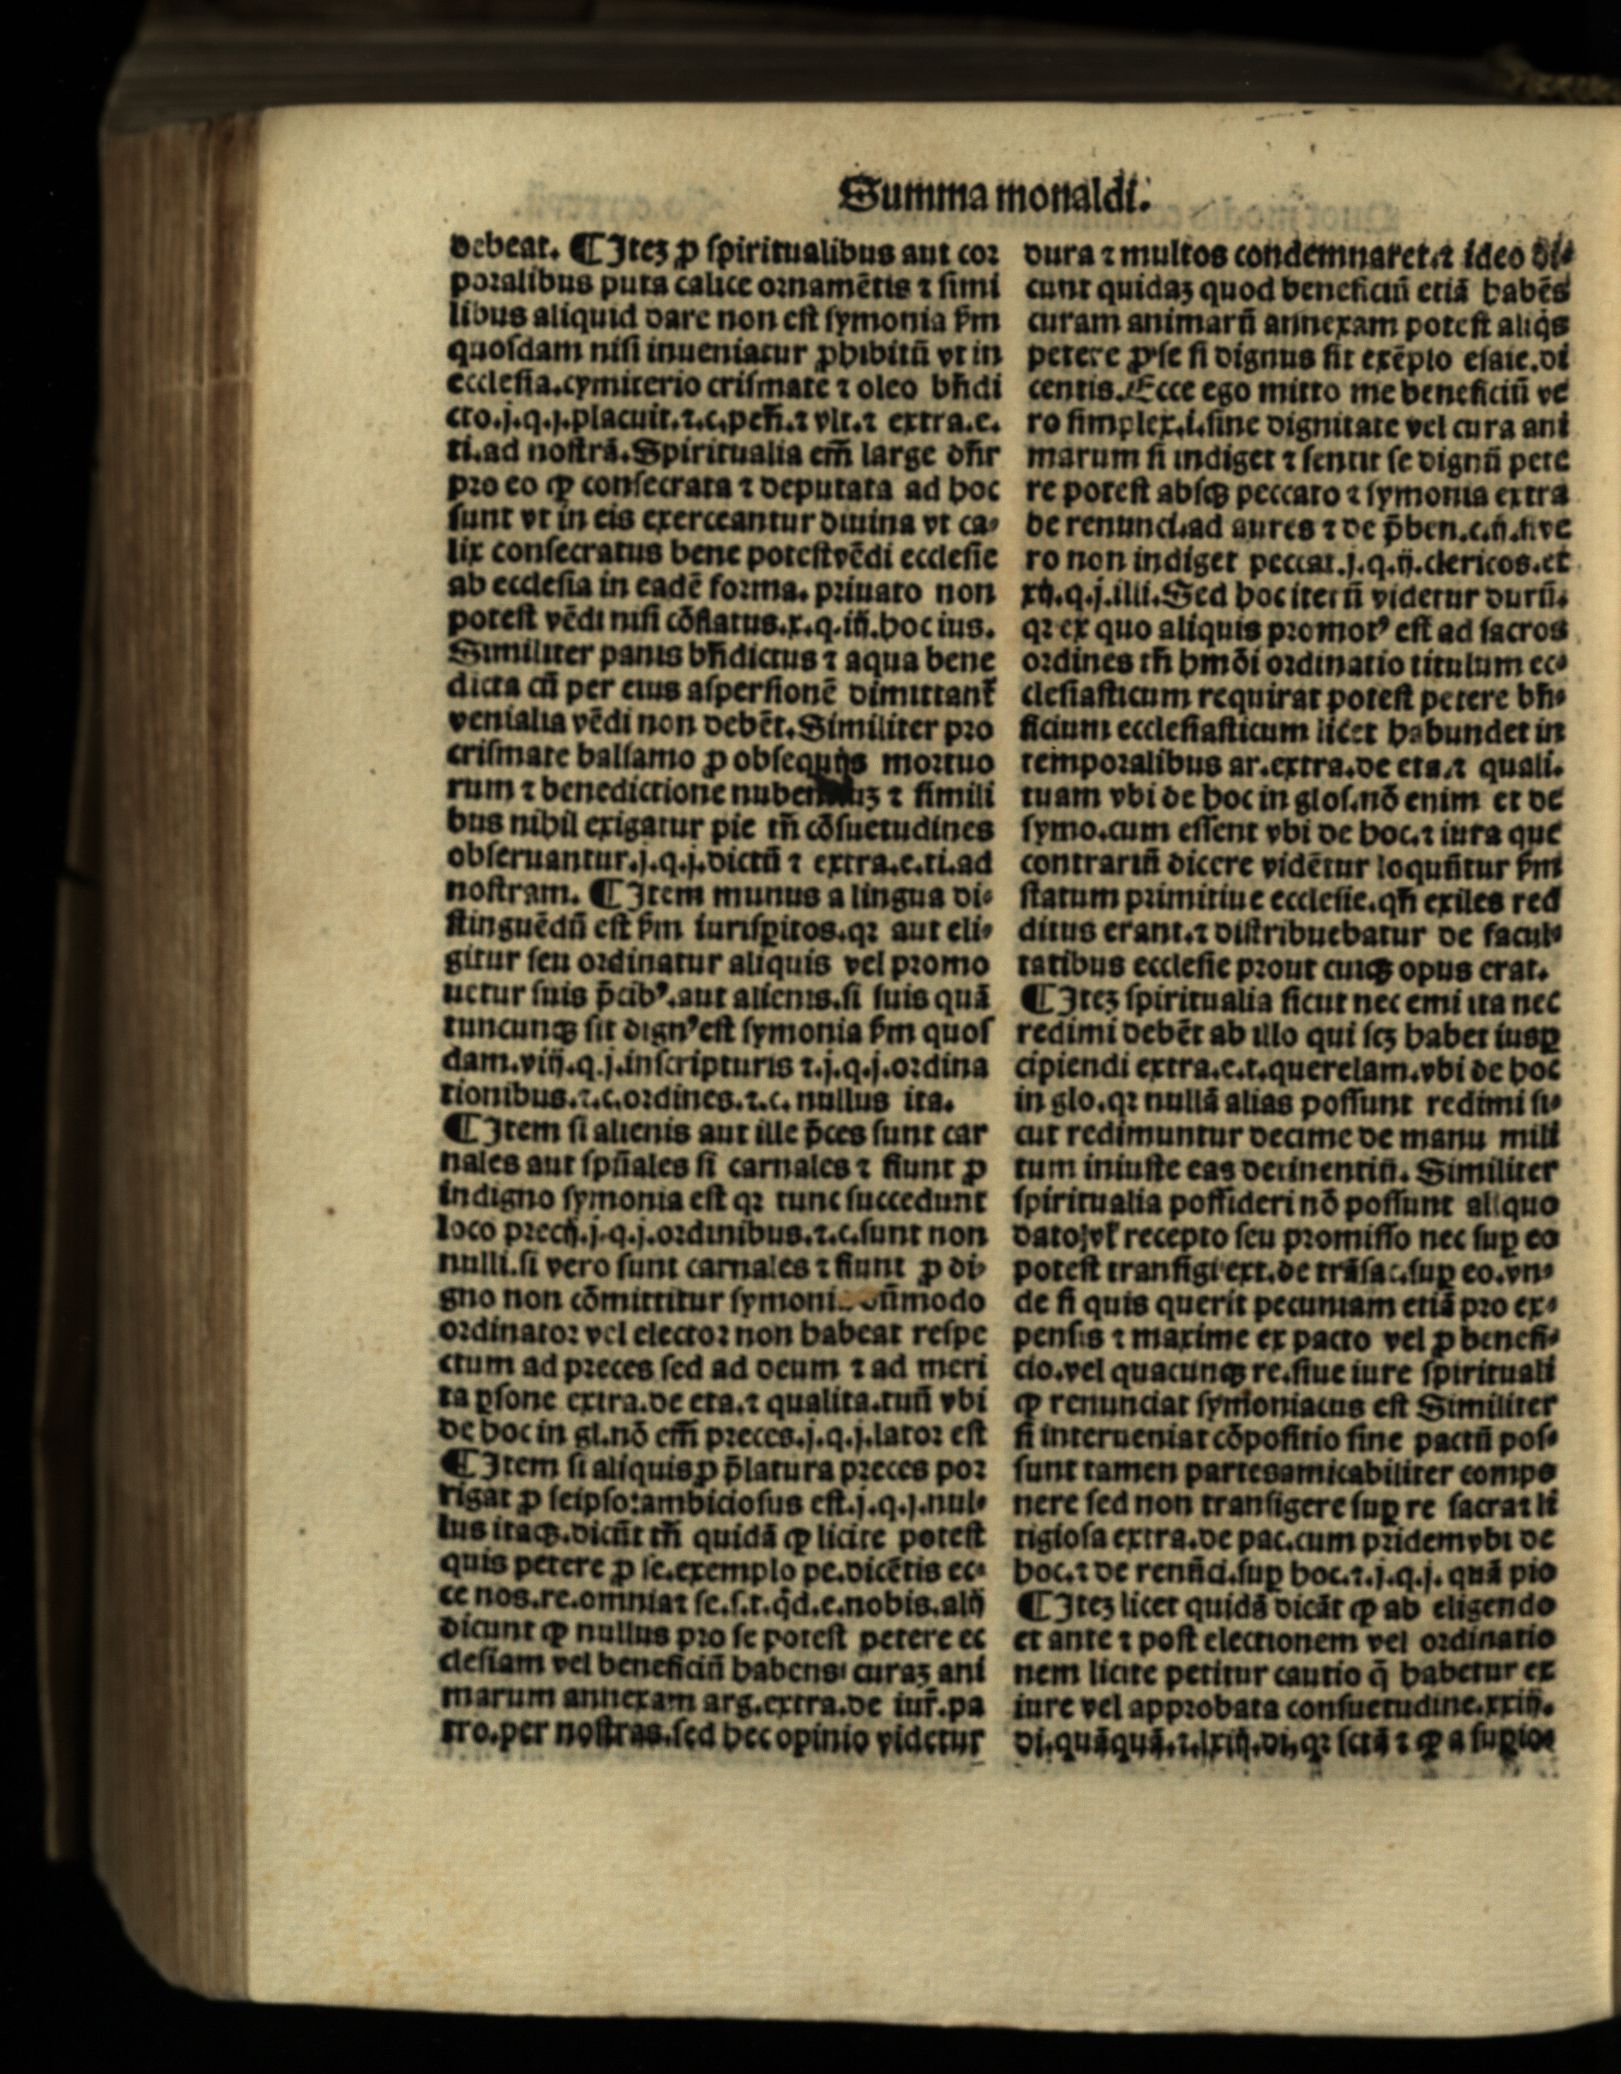 Summa monaldi.
debeat. ¶ Itez ꝓ spiritualibus aut cor
poralibus puta calice ornamētis ⁊ simi
libus aliquid dare non est symonia ẜm
quosdam nisi inueniatur ꝓhibitū vt in
ecclesia.cymiterio crismate ⁊ oleo bn̄di
cto.j.q.j.placuit.⁊.c.pen̄.⁊ vlt.⁊ extra.e.
ti.ad nostrā.Spiritualia em̄ large dn̄r
pro eo ꝙ consecrata ⁊ deputata ad hoc
sunt vt in eis exerceantur diuina vt ca-
lix consecratus bene potest vēdi ecclesie
ab ecclesia in eadē forma. priuato non
potest vēdi nisi cōflatus.x.q.iij.hoc ius.
Similiter panis bn̄dictus ⁊ aqua bene
dicta cū per eius aspersionē dimittant̄
venialia vēdi non debēt.Similiter pro
crismate balsamo ꝓ obsequijs mortuo
rum ⁊ benedictione ⁊ simili
bus nihil exigatur pie tn̄ cōsuetudines
obseruantur.j.q.j.dictū ⁊ extra.e.ti.ad
nostram. ¶ Item munus a lingua di-
stinguēdū est ẜm iurisꝑitos.qꝛ aut eli-
gitur seu ordinatur aliquis vel promo
uetur suis p̄cibꝰ.aut alienis.si suis quā
tuncunqꝫ sit dignꝰ est symonia ẜm quos
dam.viij.q.j.inscripturis ⁊.j.q.j.ordina
tionibus.⁊.c.ordines.⁊.c. nullus ita.
¶ Item si alienis aut ille p̄ces sunt car
nales aut spūales si carnales ⁊ fiunt ꝓ
indigno symonia est qꝛ tunc succedunt
loco precij.j.q.j.ordinibus.⁊.c.sunt non
nulli.si vero sunt carnales ⁊ fiunt ꝓ di-
gno non cōmittitur dūmodo
ordinator vel elector non habeat respe
ctum ad preces sed ad deum ⁊ ad meri
ta ꝑsone extra.de eta.⁊ qualita.tuū vbi
de hoc in gl.nō em̄ preces.j.q.j.lator est
¶ Item si aliquis ꝓ p̄latura preces por
rigat ꝓ seipso:ambiciosus est.j.q.j.nul-
lus itaqꝫ.dicūt tn̄ quidā ꝙ licite potest
quis petere ꝓ se.exemplo pe.dicētis ec-
ce nos.re.omniat se.s.t.q̄d.e.nobis.alij
dicunt ꝙ nullus pro se potest petere ec
clesiam vel beneficiū habens curaz ani
marum annexam arg.extra.de iur̄.pa
tro.per nostras.sed hec opinio videtur
dura ⁊ multos condemnaret.⁊ ideo di-
cunt quidaz quod beneficiū etiā habēs
curam animarū annexam potest aliq̇s
petere ꝓ se si dignus sit exēplo esaie.di
centis.Ecce ego mitto me beneficiū ve
ro simplex.i.sine dignitate vel cura ani
marum si indiget ⁊ sentit se dignū pete
re potest absqꝫ peccato ⁊ symonia extra
de renunci.ad aures ⁊ de p̄ben.c.ij.si ve
ro non indiget peccat.j.q.ij.clericos.et
xij.q.j.illi.Sed hoc iterū videtur durū.
qꝛ ex quo aliquis promotꝰ est ad sacros
ordines tn̄ hmōi ordinatio titulum ec-
clesiasticum requirat potest petere bn̄-
ficium ecclesiasticum licet habundet in
temporalibus ar.extra.de eta.⁊ quali.
tuam vbi de hoc in glos.nō enim et de
symo.cum essent vbi de hoc.⁊ iura que
contrariū dicere vidētur loquūtur ẜm
statum primitiue ecclesie.qn̄ exiles red
ditus erant.⁊ distribuebatur de facul-
tatibus ecclesie prout cuiqꝫ opus erat.
¶ Itez spiritualia sicut nec emi ita nec
redimi debēt ab illo qui scz habet ius ꝑ
cipiendi extra.e.t.querelam.vbi de hoc
in glo.qꝛ nullā alias possunt redimi si-
cut redimuntur decime de manu mili
tum iniuste eas detinentiū. Similiter
spiritualia possideri nō possunt aliquo
dato vl̄ recepto seu promisso nec suꝑ eo
potest transigi ext.de trāsac.suꝑ eo.vn-
de si quis querit pecuniam etiā pro ex-
pensis ⁊ maxime ex pacto vel ꝓ benefi-
cio.vel quacunqꝫ re.siue iure spirituali
ꝙ renunciat symoniacus est Similiter
si interueniat cōpositio sine pactū pos-
sunt tamen partes amicabiliter compo
nere sed non transigere suꝑ re sacra ⁊ li
tigiosa extra.de pac.cum pridem vbi de
hoc.⁊ de renūci.suꝑ hoc.⁊.j.q.j. quā pio
¶ Itez licet quidā dicāt ꝙ ab eligendo
et ante ⁊ post electionem vel ordinatio
nem licite petitur cautio q̄ habetur ex
iure vel approbata consuetudine.xxiij.
di.quāquā.⁊.lxiij.di.qꝛ sctā ⁊ ꝙ a suꝑio-